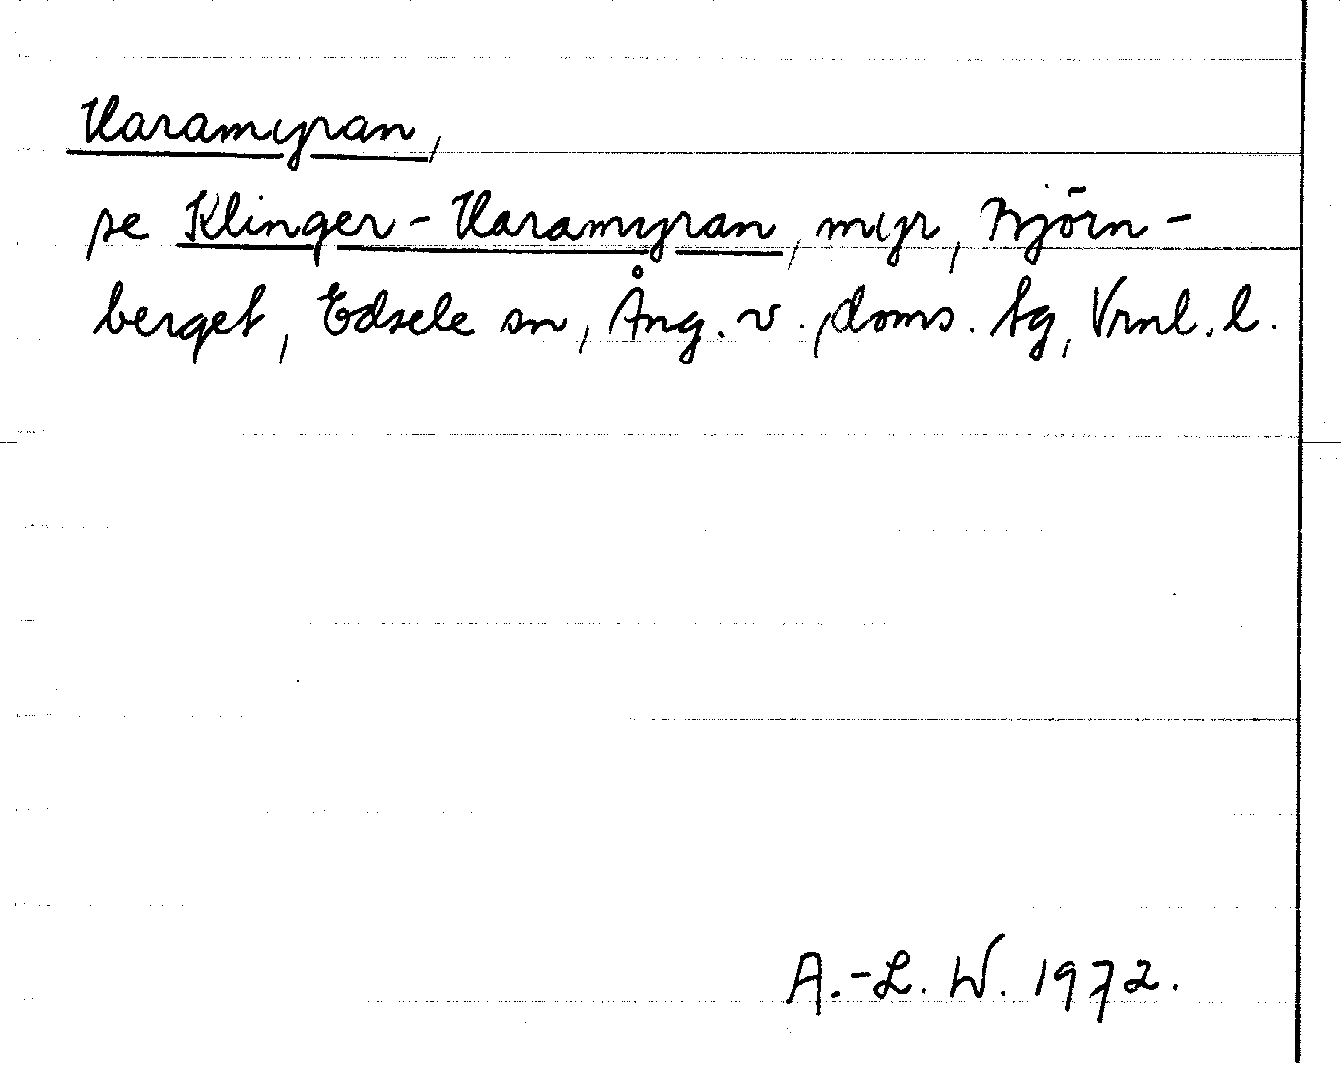 Haramyran,
se Klinger-Haramyran, myr, Björn-
berget, Edsele sn, Ång. v., doms. tg, Vrnl. l.
A.-L. W. 1972.